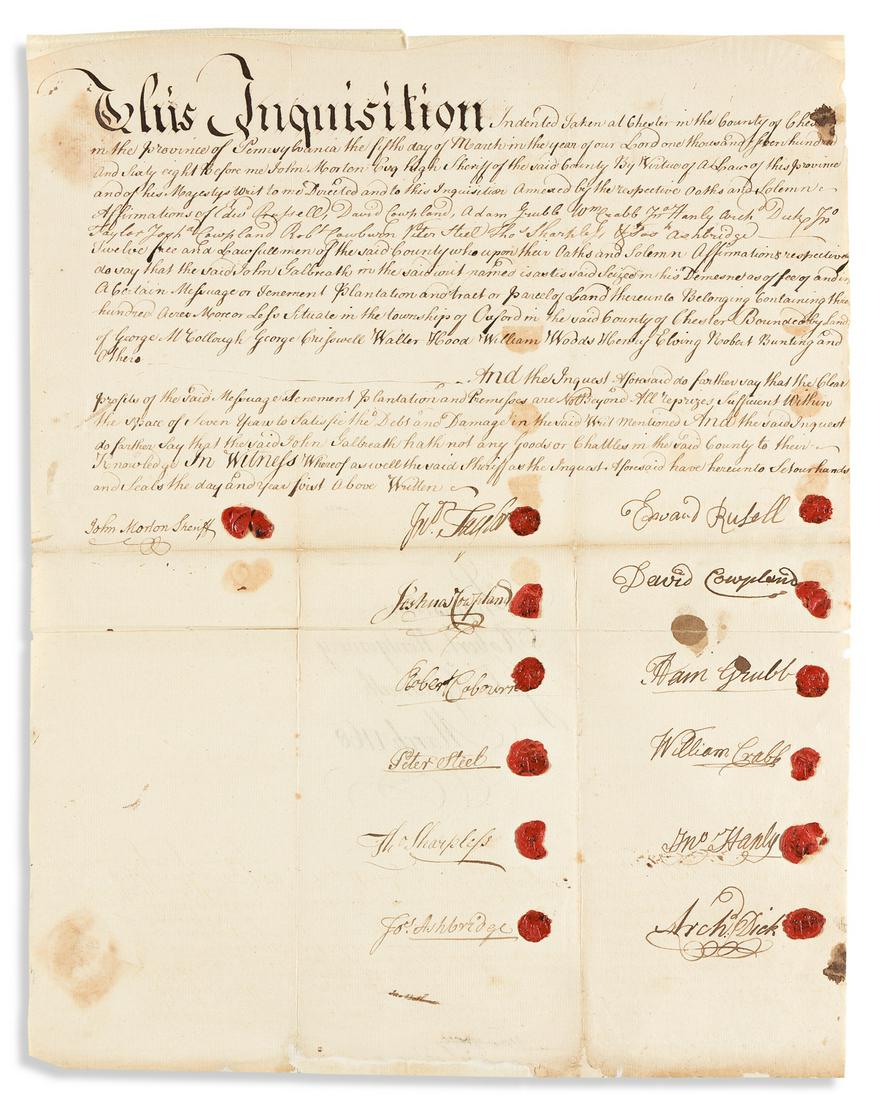 This Inquisition Indented Taken at Chester in the County of
in the Province of Pennsylvania the fifth day of March in the year of our Lord one thousand seven hundred
And Sixty eight before me John Morton Esq high Sheriff of the said County By Virtue of A Law of this Province
and of his Majestys writ to me Directed and to this Inquisition Annexed by the respective Oaths and Solemn
Affirmations of Edwd Russell, David Cowpland, Adam Grubb Wm Crabb Jno Hanly Archd Dick Jno
Taylor Josha Cowpland Robt Cowburn Peter Steel Thos Sharpless, & Jos Ashbridge
Twelve free and Lawfull men of the said County who upon their Oaths and Solemn Affirmations respectively
do say that the said John Galbreath in the said writ named is as is said Seized in his Demesne as of fee of and in
A Certain Messuage or Tenement Plantation and tract or parcel of Land thereunto Belonging Containing three
hundred Acres More or Less Situate in the township of Oxford in the said County of Chester Bounded by land
of George McCollough George Crisswell Walter Hood William Woods Henry Ewing Robert Bunting and
Others
And the Inquest Aforesaid do farther say that the Clear
profits of the said Messuage Tenement Plantation and Premesses are Not Beyond All reprizes Sufficent Within
the Space of Seven Years to Satisfie the Debt and Damage in the said Writ Mentioned And the said Inquest
do farther Say that the said John Galbreath hath not any Goods or Chattles in the said County to their
Knowledge In Witness Whereof as well the said Sheriff as the Inquest Aforesaid have hereunto Set our hands
and Seals the day and Year first Above Written
John Morton Sheriff
Jno Taylor
Edward Rusell
Joshua Cowpland
David Cowpland
Robert Cobourn
Adam Grubb
Peter Steel
William Crabb
Tho Sharpless
Jno Hanly
Jos Ashbridge
Archd Dick